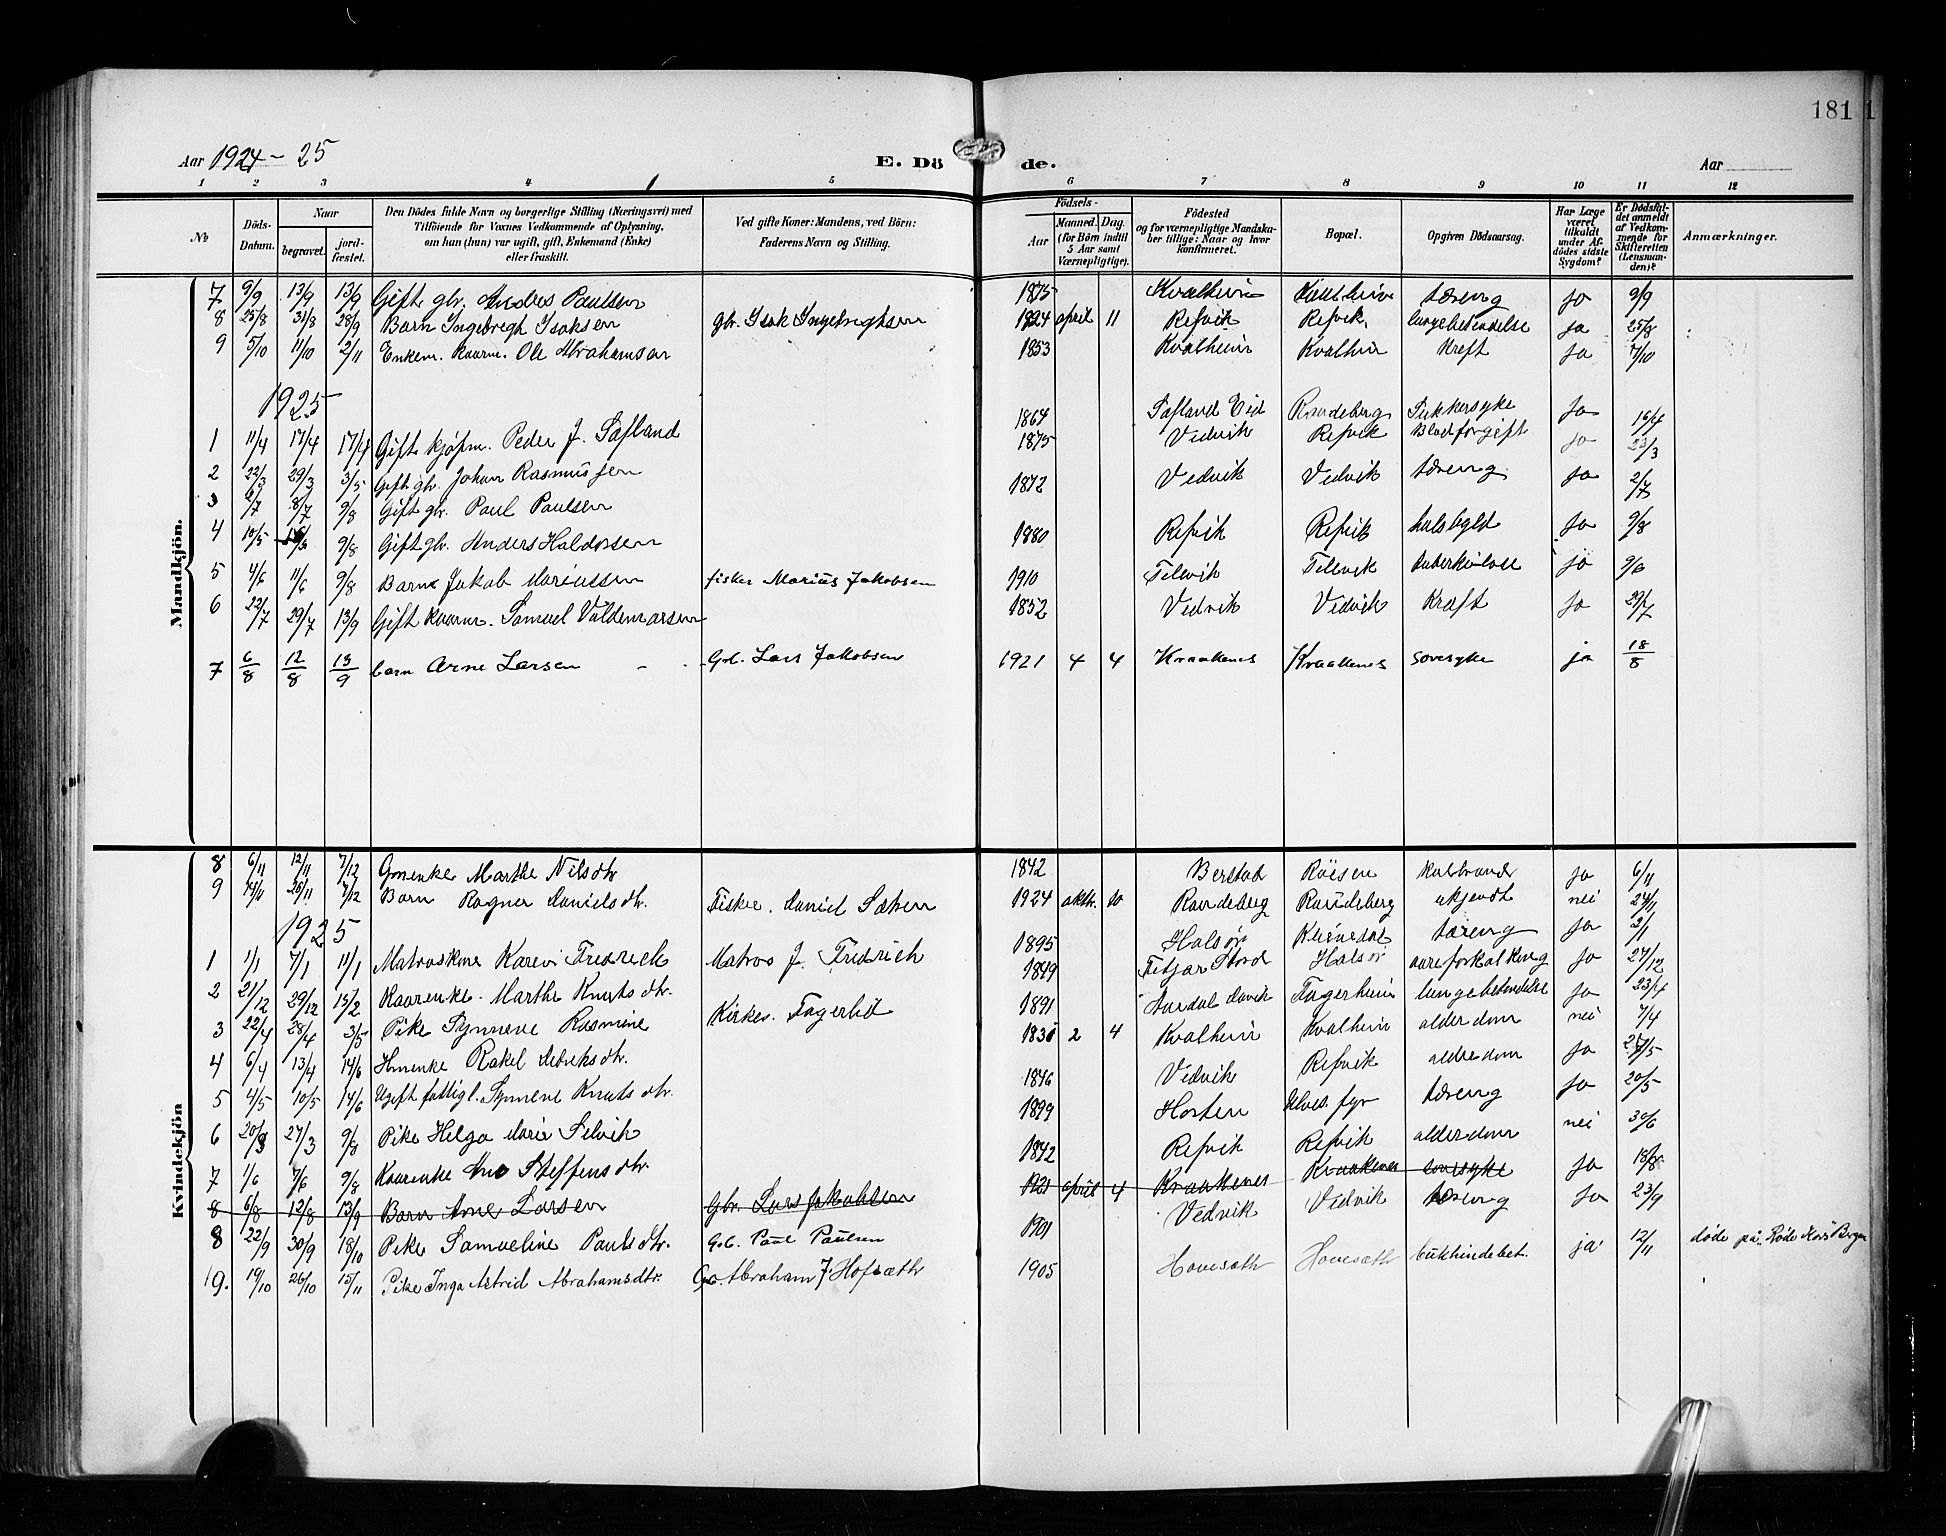 181
Aar 1924 - 25 E. Döde. Aar
1 2 3 4 5 6 7 8 9 10 11 12
No
Döds-Datum.
Naar
begravet.
jordfæstet.
Den Dödes fulde Navn og borgerlige Stilling (Næringsvei) med Tilföiende for Voxnes Vedkommende af Oplysning, om han (hun) var ugift, gift, Enkemand (Enke) eller fraskilt.
Ved gifte Koner: Mandens, ved Börn: Faderens Navn og Stilling.
Födsels-
Aar
Maaned. Dag.
(for Börn indtil 5 Aar samt Værnepligtige).
Födested og for værnepligtige Mandskaber tillige: Naar og hvor konfirmeret.
Bopæl.
Opgiven Dödsaarsag.
Har Læge været tilkaldt under Afdödes sidste Sygdom?
Er Dödsfaldet anmeldt af Vedkommende for Skifteretten (Lensmanden)?
Anmærkninger.
Mandkjön.
7 9/9 13/9 13/9 Gift gbr. Andres Paulsen 1875 Kvalheim Kvalheim tæreng ja 9/9
8 25/8 31/8 28/9 Barn Ingebregt Isaksen gbr. Isak Ingebrightsen 1924 april 11 Refvik Refvik lungebetendelse ja 25/8
9 5/10 11/10 2/11 Enkem. kaarm. Ole Abrahamsen 1853 Kvalheim Kvalheim kreft ja 7/10
1925
1 11/4 17/4 17/4 Gift kjøpm. Peder J. Satland 1864 Satland Eid Raudeberg Sukkersyke Ja 16/4
2 22/3 29/3 3/5 Gift gbr. Johan Rasmussen 1875 Vedvik Refvik Blodforgift ja 23/3
3 2/7 8/7 9/8 Gift gbr. Paul Paulsen 1872 Vedvik Vedvik tæreng Ja 2/7
4 10/5 9/8 Gift gbr. Anders Haldorsen 1880 Refvik Refvik halsbyld Ja 9/8
5 4/6 11/6 9/8 Barn Jakob Mariussen fisker Marius Jakobsen 1910 Tilevik Tilevik tuberkulose ja 9/6
6 22/7 29/7 13/9 Gift kaarm. Samuel Valdemarsen 1852 Vedvik Vedvik Kræft Ja 29/7
7 6/8 12/8 13/9 barn Arne Larsen - - Gbr. Lars Jakobsen 1921 4 4 Kraakenes Kraakenes sovesyke ja 18/8
Kvindekjön
8 6/11 12/11 7/12 Gmenke Marthe Nilsdtr 1842 Berstad Röisen kalbrand Ja 6/11
9 14/11 26/11 7/12 Barn Ragna Danielsdtr. Fisker. Daniel Sætren 1924 oktbr. 10 Raudeberg Raudeberg ukjendt nei 24/11
1925
1 1/1 7/1 11/1 Matroskone Karen Fredrich Matros J. Fredrich 1895 Halsör tæreng Ja 3/1
2 21/12 29/12 15/2 Kaarenke. Marthe Knutsdtr. 1849 Fitjar Stord Halsör aareforkalkning Ja 27/12
3 22/4 28/4 3/5 Pike Synneve Rasmine Kirkes. Fagerlid 1891 Aardal Davik Fagerheim lungebetendelse Ja 23/4
4 6/4 13/4 14/6 Hmenke Rakel Didriksdtr. 1831 2 4 Kvalheim Kvalheim alderdom nei 7/4
5 4/5 10/5 14/6 Ugift fattigl. Synneve Knutsdtr. 1846 Vedvik Refvik aldredom Ja 27/5
6 20/3 27/3 9/8 Pike Helga Marie Silvik 1899 Horten Ulves. fyr tæreng Ja 20/5
7 1/6 7/6 9/8 Kaarenke Ane Steffensdtr. 1842 Refvik Refvik alderdom nei 30/6
8 6/8 12/8 13/9 Barn Arne Larsen Gbr. Lars Jakobsen 1921 april 4 Kraakenes Kraakenes sovesyke Ja 18/8
8 22/9 30/9 18/10 Pike Samueline Paulsdtr. Gbr. Paul Paulsen 1901 Vedvik Vedvik tæreng Ja 23/9
19. 19/10 26/10 15/11 Pike Inga Astrid Abrahamsdtr. Gbr. Abraham J. Hofsæth 1905 Hovesæth Hovesæth bukhindebet. ja 12/11 döde på "Röde Kors" Bergen